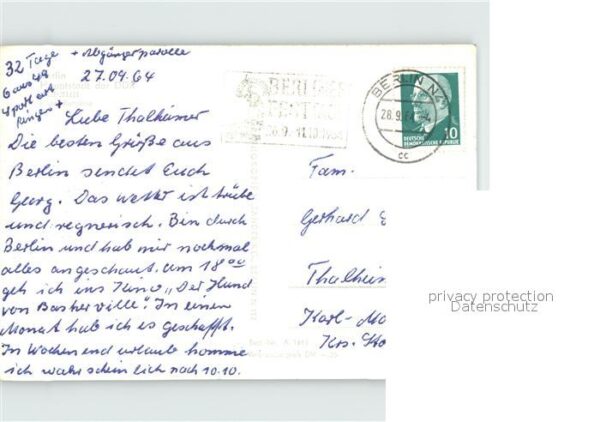 32 Tage + Abgängerparolle
6 aus 49
Sportart
Ringen +
27.09.64
Liebe Thalheimer
Die besten Grüße aus
Berlin sendet Euch
Georg. Das wetter ist trübe
und regnerisch. Bin durch
Berlin und hab mir nochmal
alles angeschaut. Um 18 00
geh ich ins Kino „Der Hund
von Baskerville". In einen
Monat hab ich es geschafft.
In Wochenend urlaub komme
ich wahrscheinlich nach 10.10.
BERLINER
FESTTAGE
BERLIN N4
28.9.64
cc
10
DEUTSCHE
DEMOKRATISCHE REPUBLIK
Fam.
Gerhard
Thalheim
Karl-Ma
Krs. Sto
privacy protection
Datenschutz